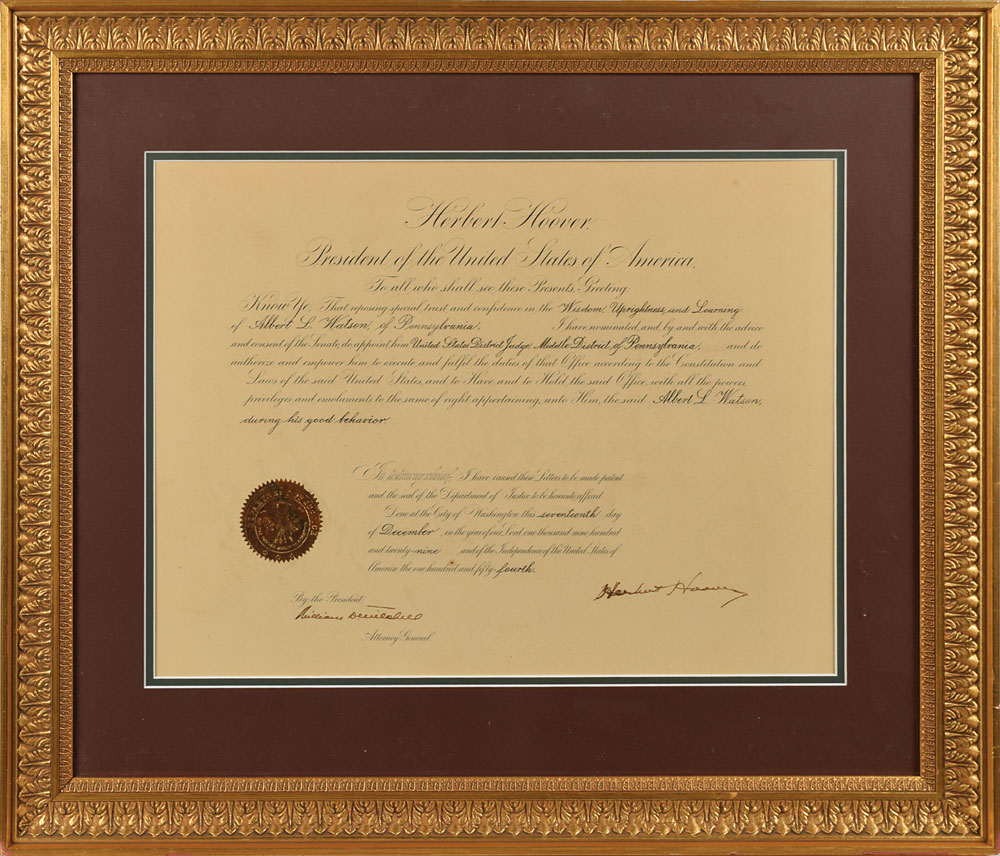 Herbert Hoover,
President of the United States of America,
To all who shall see these Presents, Greeting:
Know Ye, That reposing special trust and confidence in the Wisdom, Uprightness, and Learning
of Albert L. Watson, of Pennsylvania, I have nominated, and, by and with the advice
and consent of the Senate, do appoint him United States District Judge, Middle District of Pennsylvania, and do
authorize and empower him to execute and fulfil the duties of that Office according to the Constitution and
Laws of the said United States, and to Have and to Hold the said Office, with all the powers,
privileges and emoluments to the same of right appertaining, unto Him, the said Albert L. Watson,
during his good behavior.
In testimony whereof, I have caused these Letters to be made patent
and the seal of the Department of Justice to be hereunto affixed.
Done at the City of Washington this seventeenth day
of December, in the year of our Lord one thousand nine hundred
and twenty-nine and of the Independence of the United States of
America the one hundred and fifty-fourth.
Herbert Hoover
By the President:
William D Mitchell
Attorney General.